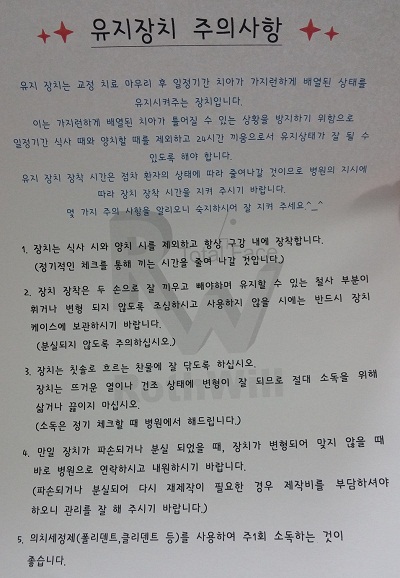 유지장치 주의사항
유지 장치는 교정 치료 마무리 후 일정기간 치아가 가지런하게 배열된 상태를
유지시켜주는 장치입니다.
이는 가지런하게 배열된 치아가 틀어질 수 있는 상황을 방지하기 위함으로
일정기간 식사 때와 양치할 때를 제외하고 24시간 끼움으로서 유지상태가 잘 될 수
있도록 해야 합니다.
유지 장치 장착 시간은 점차 환자의 상태에 따라 줄어나갈 것이므로 병원의 지시에
따라 장치 장착 시간을 지켜 주시기 바랍니다.
몇 가지 주의 사항을 알리오니 숙지하시어 잘 지켜 주세요^_^
1. 장치는 식사 시와 양치 시를 제외하고 항상 구강 내에 장착합니다.
(정기적인 체크를 통해 끼는 시간을 줄여 나갈 것입니다.)
2. 장치 장착은 두 손으로 잘 끼우고 빼야하며 유지할 수 있는 철사 부분이
휘거나 변형 되지 않도록 조심하시고 사용하지 않을 시에는 반드시 장치
케이스에 보관하시기 바랍니다.
(분실되지 않도록 주의하십시오.)
3. 장치는 칫솔로 흐르는 찬물에 잘 닦도록 하십시오.
장치는 뜨거운 열이나 건조 상태에 변형이 잘 되므로 절대 소독을 위해
삶거나 끓이지 마십시오.
(소독은 정기 체크할 때 병원에서 해드립니다.)
4. 만일 장치가 파손되거나 분실 되었을 때, 장치가 변형되어 맞지 않을 때
바로 병원으로 연락하시고 내원하시기 바랍니다.
(파손되거나 분실되어 다시 재제작이 필요한 경우 제작비를 부담하셔야
하오니 관리를 잘 해 주시기 바랍니다.)
5. 의치세정제(폴리덴트,클리덴트 등)를 사용하여 주1회 소독하는 것이
좋습니다.